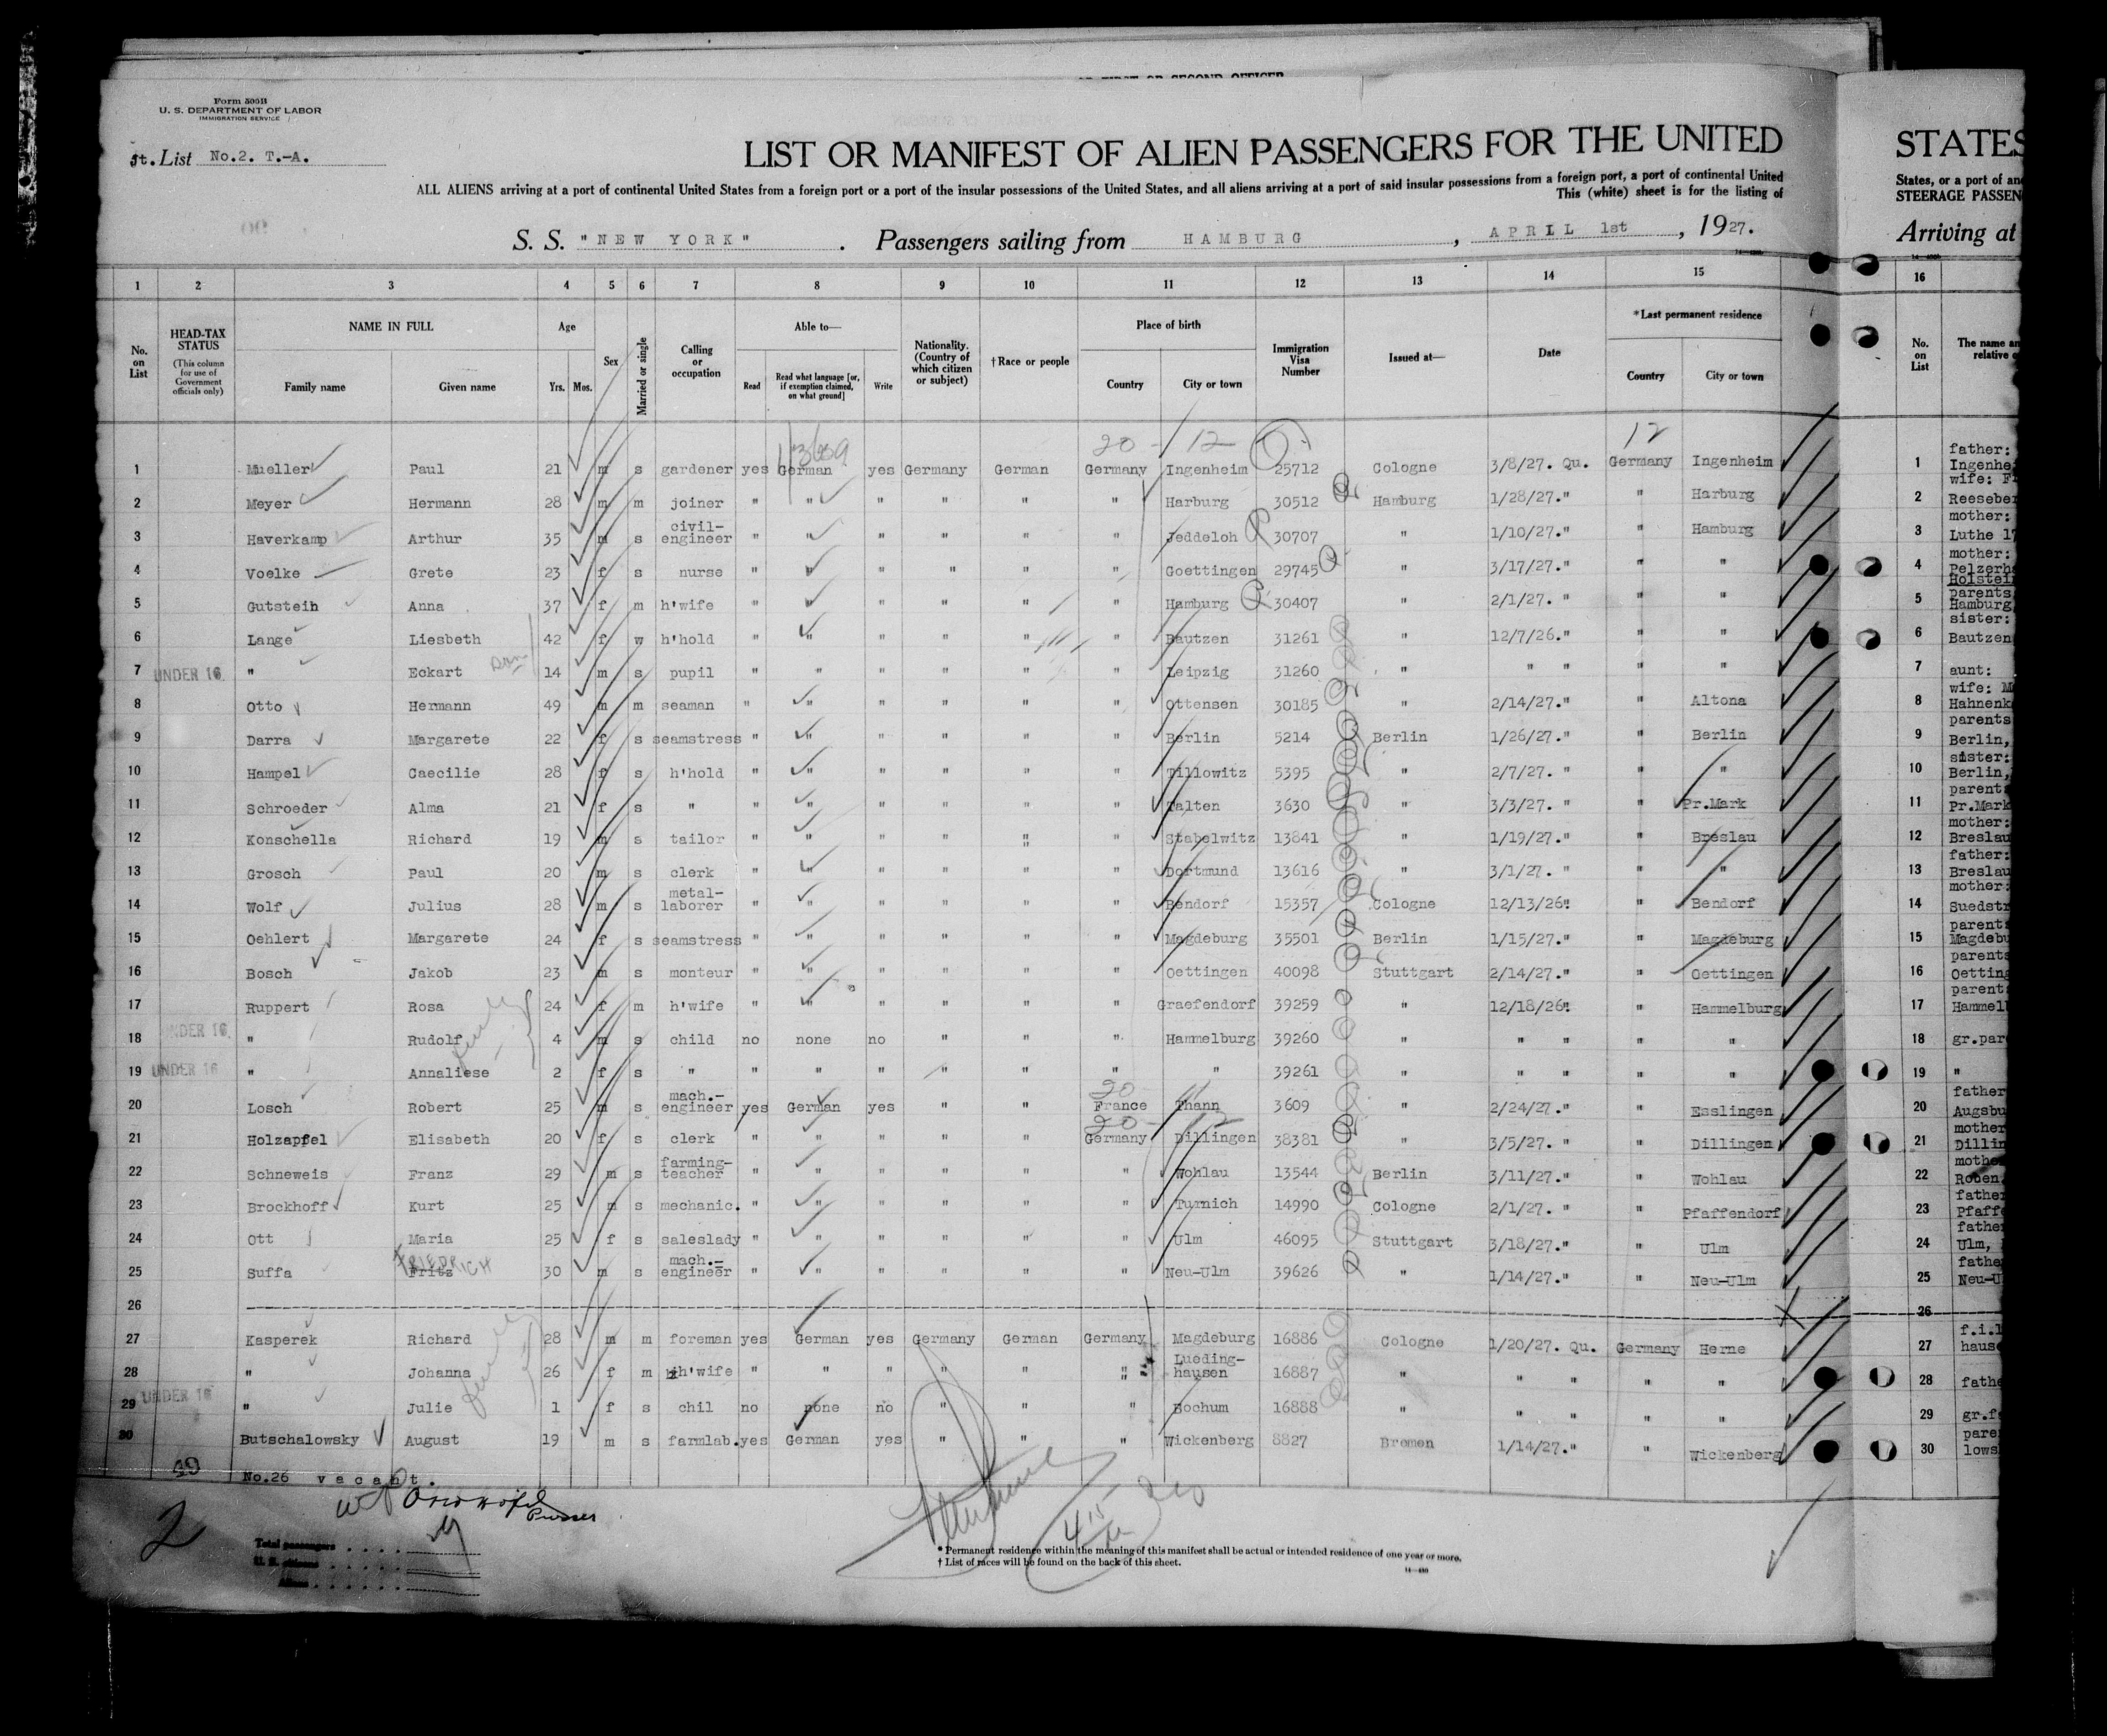 OR FIRST OR SECOND OFFICER
Form 500B
U. S. DEPARTMENT OF LABOR
IMMIGRATION SERVICE
St. List No.2. T.-A.
LIST OR MANIFEST OF ALIEN PASSENGERS FOR THE UNITED
ALL ALIENS arriving at a port of continental United States from a foreign port or a port of the insular possessions of the United States, and all aliens arriving at a port of said insular possessions from a foreign port, a port of continental United
This (white) sheet is for the listing of
S. S. "NEW YORK" . Passengers sailing from HAMBURG , APRIL 1st , 1927.
STATES
States, or a port of an
STEERAGE PASSEN
Arriving at
1 2 3 4 5 6 7 8 9 10 11 12 13 14 15 16
No. on List HEAD-TAX STATUS (This column for use of Government officials only) NAME IN FULL Family name Given name Age Yrs. Mos. Sex Married or single Calling or occupation Able to— Read Read what language [or, if exemption claimed, on what ground] Write Nationality. (Country of which citizen or subject) †Race or people Place of birth Country City or town Immigration Visa Number Issued at— Date *Last permanent residence Country City or town No. on List The name an relative o
20 - 12 12
1 Mueller Paul 21 m s gardener yes German yes Germany German Germany Ingenheim 25712 Cologne 3/8/27. Qu. Germany Ingenheim 1 father: Ingenhe
2 Meyer Hermann 28 m m joiner " " " " " " Harburg 30512 Hamburg 1/28/27." " Harburg 2 wife: F Reeseber
3 Haverkamp Arthur 35 m s civil-engineer " " " " " " Jeddeloh 30707 " 1/10/27." " Hamburg 3 mother: Luthe 17
4 Voelke Grete 23 f s nurse " " " " " " Goettingen 29745 " 3/17/27." " " 4 mother: Pelzerha Holstein
5 Gutstein Anna 37 f m h'wife " " " " " " Hamburg 30407 " 2/1/27. " " " 5 parents Hamburg
6 Lange Liesbeth 42 f w h'hold " " " " " " Bautzen 31261 " 12/7/26." " " 6 sister: Bautzen
7 UNDER 16. " Eckart son 14 m s pupil " " " " " " Leipzig 31260 " " " " " 7 aunt:
8 Otto Hermann 49 m m seaman " " " " " " Ottensen 30185 " 2/14/27." " Altona 8 wife: M Hahnenk
9 Darra Margarete 22 f s seamstress " " " " " " Berlin 5214 Berlin 1/26/27." " Berlin 9 parents Berlin,
10 Hampel Caecilie 28 f s h'hold " " " " " " Tillowitz 5395 " 2/7/27. " " " 10 sister: Berlin,
11 Schroeder Alma 21 f s " " " " " " " Talten 3630 " 3/3/27. " " Pr.Mark 11 parents Pr.Mark
12 Konschella Richard 19 m s tailor " " " " " " Stabelwitz 13841 " 1/19/27." " Breslau 12 mother: Breslau
13 Grosch Paul 20 m s clerk " " " " " " Dortmund 13616 " 3/1/27. " " " 13 father: Breslau
14 Wolf Julius 28 m s metal-laborer " " " " " " Bendorf 15357 Cologne 12/13/26" " Bendorf 14 mother: Suedstr
15 Oehlert Margarete 24 f s seamstress " " " " " " Magdeburg 35501 Berlin 1/15/27." " Magdeburg 15 parents Magdebu
16 Bosch Jakob 23 m s monteur " " " " " " Oettingen 40098 Stuttgart 2/14/27." " Oettingen 16 parents Oetting
17 Ruppert Rosa 24 f m h'wife " " " " " " Graefendorf 39259 " 12/18/26" " Hammelburg 17 parent Hammelb
18 UNDER 16. " Rudolf family 4 m s child no none no " " " Hammelburg 39260 " " " " " 18 gr.par
19 UNDER 16 " Annaliese 2 f s " " " " " " " " 39261 " " " " " 19 "
20
20 Losch Robert 25 m s mach.-engineer yes German yes " " France Thann 3609 " 2/24/27." " Esslingen 20 father Augsbu
20 - 12
21 Holzapfel Elisabeth 20 f s clerk " " " " " Germany Dillingen 38381 " 3/5/27. " " Dillingen 21 mother Dillin
22 Schneweis Franz 29 m s farming-teacher " " " " " " Wohlau 13544 Berlin 3/11/27." " Wohlau 22 mothe Roben,
23 Brockhoff Kurt 25 m s mechanic. " " " " " " Turnich 14990 Cologne 2/1/27. " " Pfaffendorf 23 father Pfaffe
24 Ott Maria 25 f s saleslady " " " " " " Ulm 46095 Stuttgart 3/18/27." " Ulm 24 father Ulm,
25 Suffa Fritz FRIEDRICH 30 m s mach.-engineer " " " " " " Neu-Ulm 39626 " 1/14/27." " Neu-Ulm 25 fathe Neu-U
26 26
27 Kasperek Richard 28 m m foreman yes German yes Germany German Germany Magdeburg 16886 Cologne 1/20/27. Qu. Germany Herne 27 f.i.l hause
28 " Johanna family 26 f m h'wife " " " " " " Lueding-hausen 16887 " " " " " 28 fathe
29 UNDER 16 " Julie 1 f s chil no none no " " " Bochum 16888 " " " " " 29 gr.f
30 Butschalowsky August 19 m s farmlab. yes German yes " " " Wickenberg 8827 Bremen 1/14/27." " Wickenberg 30 pare lows
49
No.26 vacant.
2
Total passengers
U. S. citizens
Aliens
* Permanent residence within the meaning of this manifest shall be actual or intended residence of one year or more.
† List of races will be found on the back of this sheet.